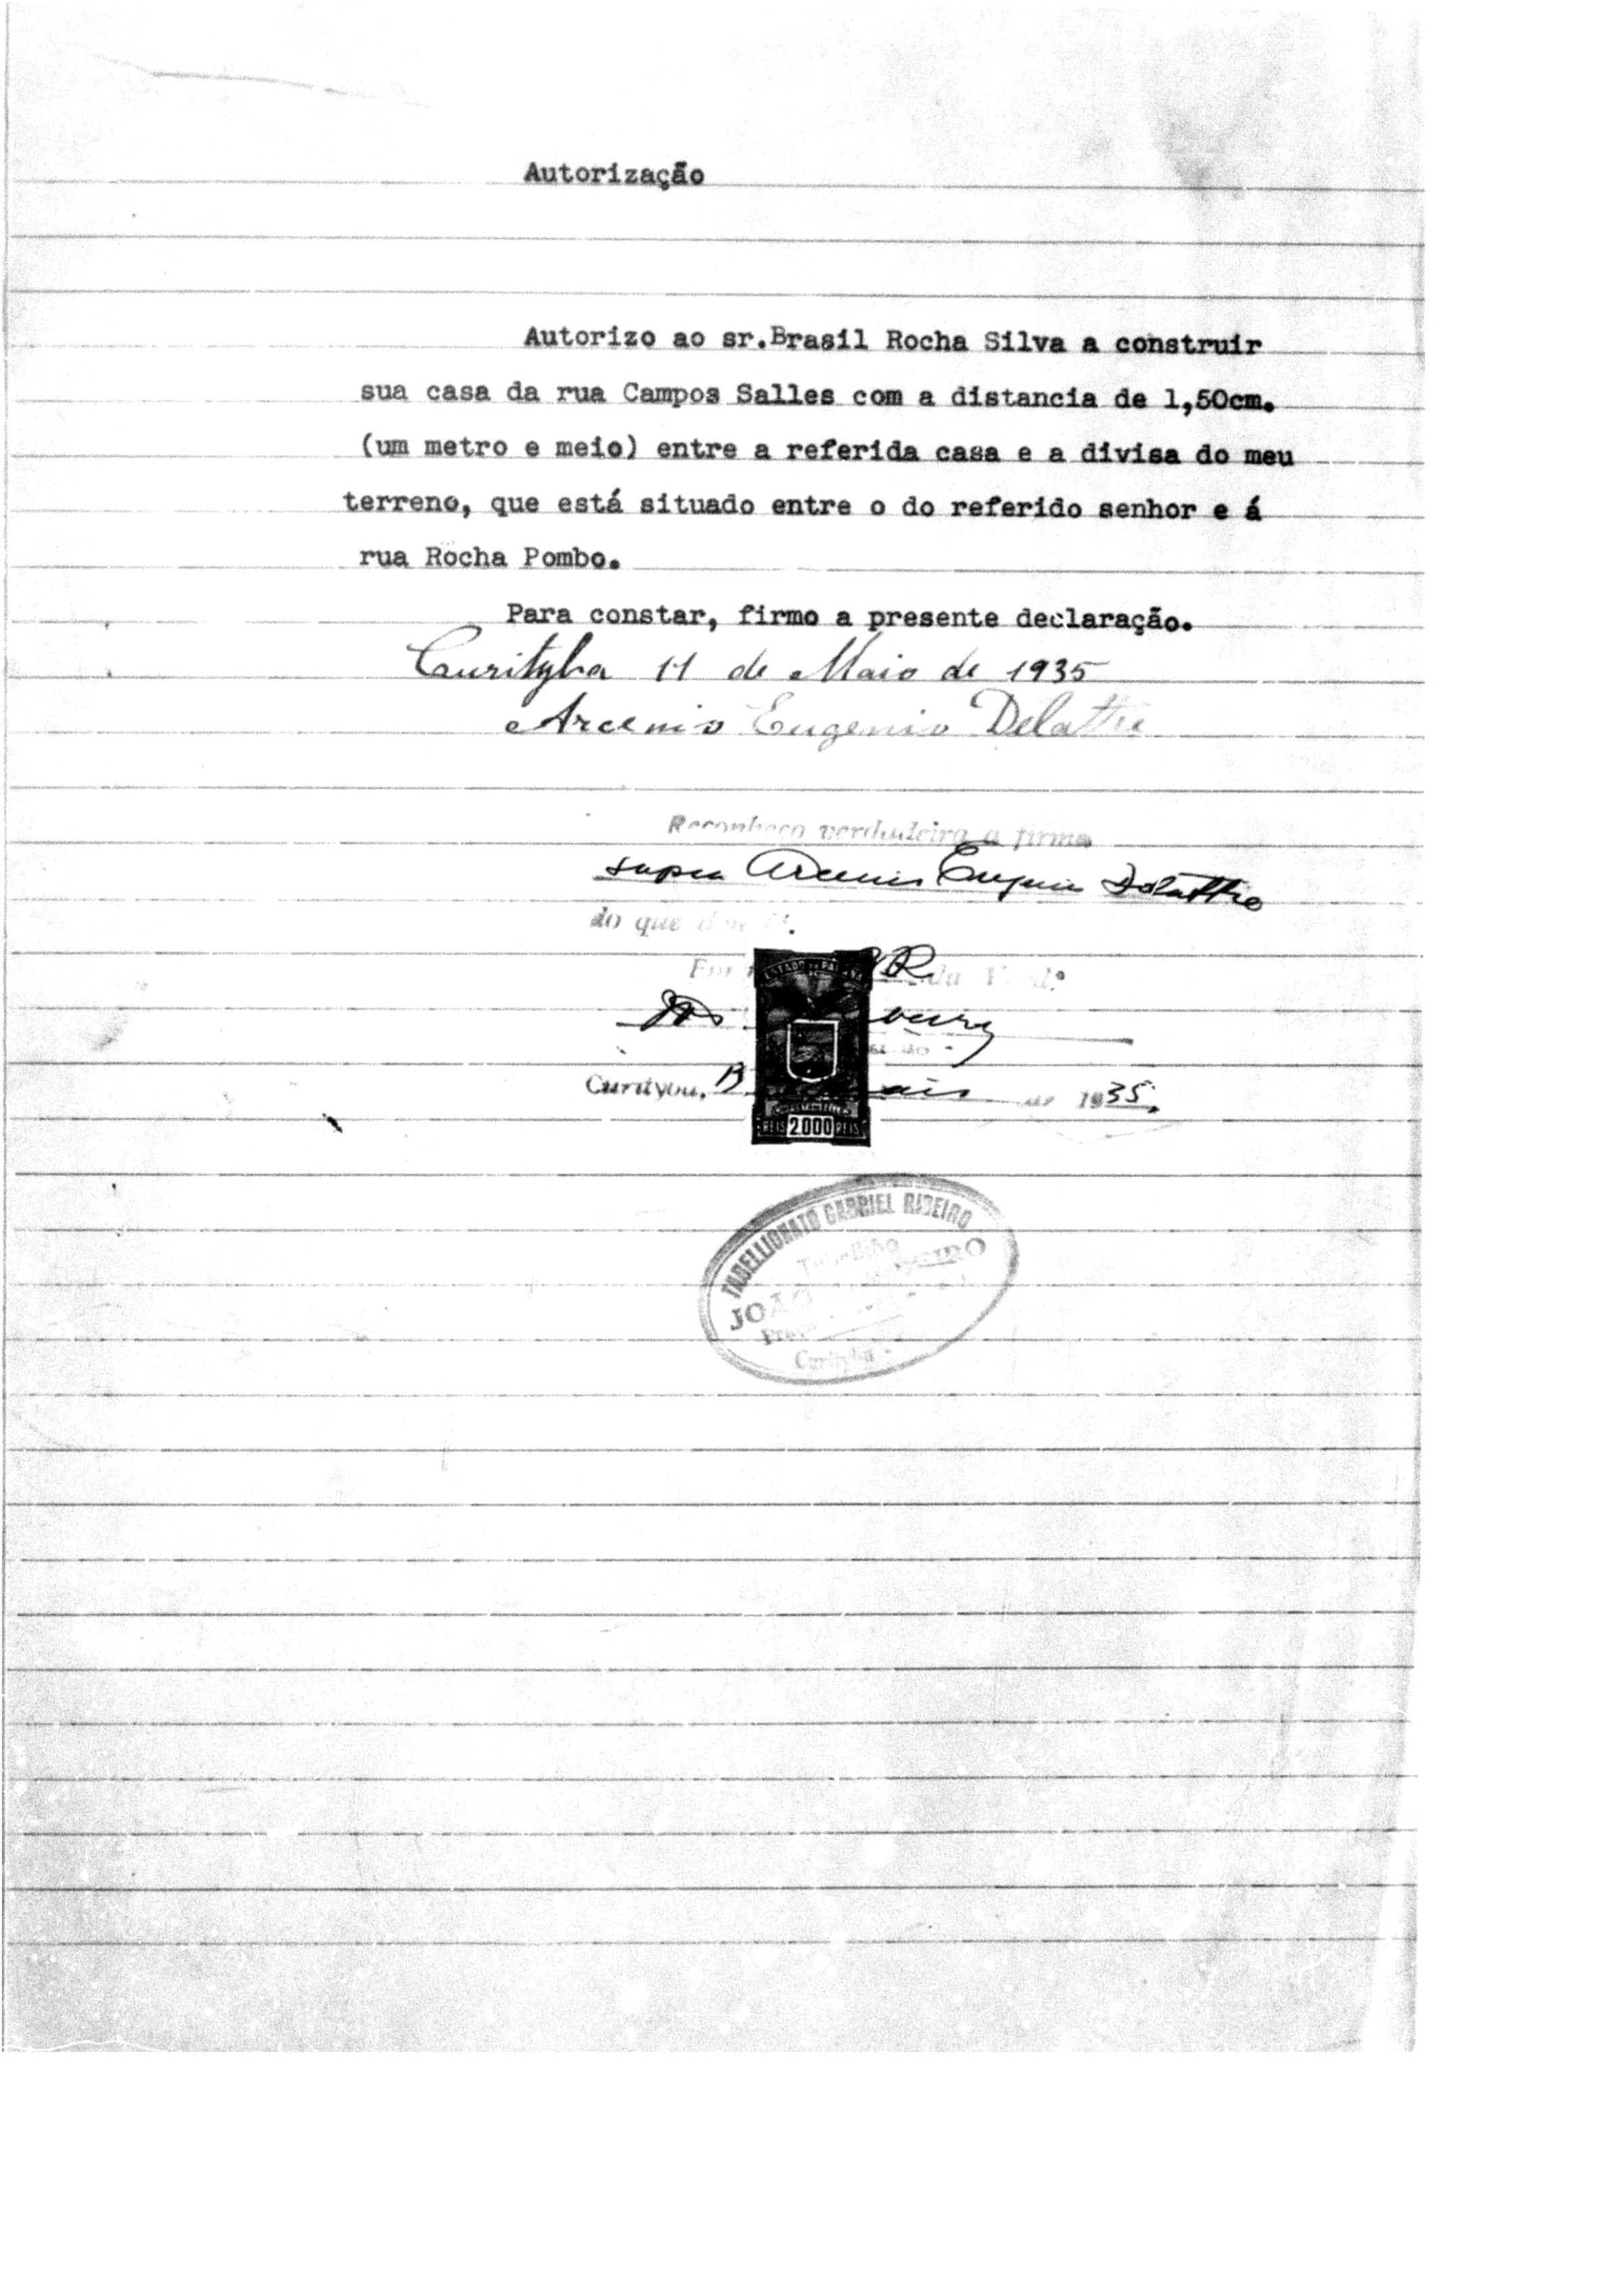 Autorização
Autorizo ao sr.Brasil Rocha Silva a construir
sua casa da rua Campos Salles com a distancia de 1,50cm.
(um metro e meio) entre a referida casa e a divisa do meu
terreno, que está situado entre o do referido senhor e á
rua Rocha Pombo.
Para constar, firmo a presente declaração.
Curityba 11 de Maio de 1935
Arcenio Eugenio Delattre
Reconheço verdadeira a firma
supra Arcenio Eugenio Delattre
do que
Em da
ESTADO DO PARANÁ
Curityba, 13 de 1935.
REIS 2000 REIS
TABELLIONATO GABRIEL RIBEIRO
Tabellião
JOÃO RIBEIRO
Curityba